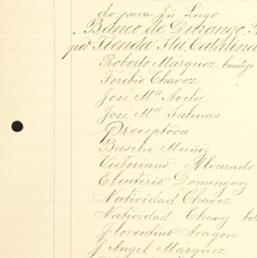 do para Jn Lugo
Banco de Durango
por Tienda Sta Catalina
Roberto Marquez
Toribio Chavez
José Ma Avila
José Ma Salinas
Preceptora
Basilio Muñiz
Victoriano Alvarado
Eleuterio Dominguez
Natividad Chavez
Natividad Chavez
Florentino Aragon
J Angel Marquez